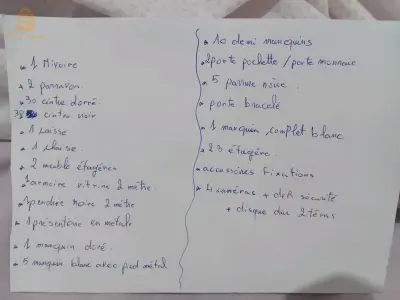 . 1 Mivoire
. 2 paravon
. 30 cintre dorré
35 cintre noir
. 1 caisse
. 1 chaise
. 2 meuble étagères
. armoire vitrine 2 mètre
1 pendre noire 2 mètre
. 1 présentoire en métale
. 1 manquin doré.
. 5 manquin blanc avec pied métal
. 10 demi manquins
. 2 porte pochette / porte monnaie
. 5 parure noire.
. porte bracelé
. 1 manquin complet blanc
. 23 étagère
. accessoires Fixations
. 4 caméras + dvR sécurité
+ disque dur 2 téras